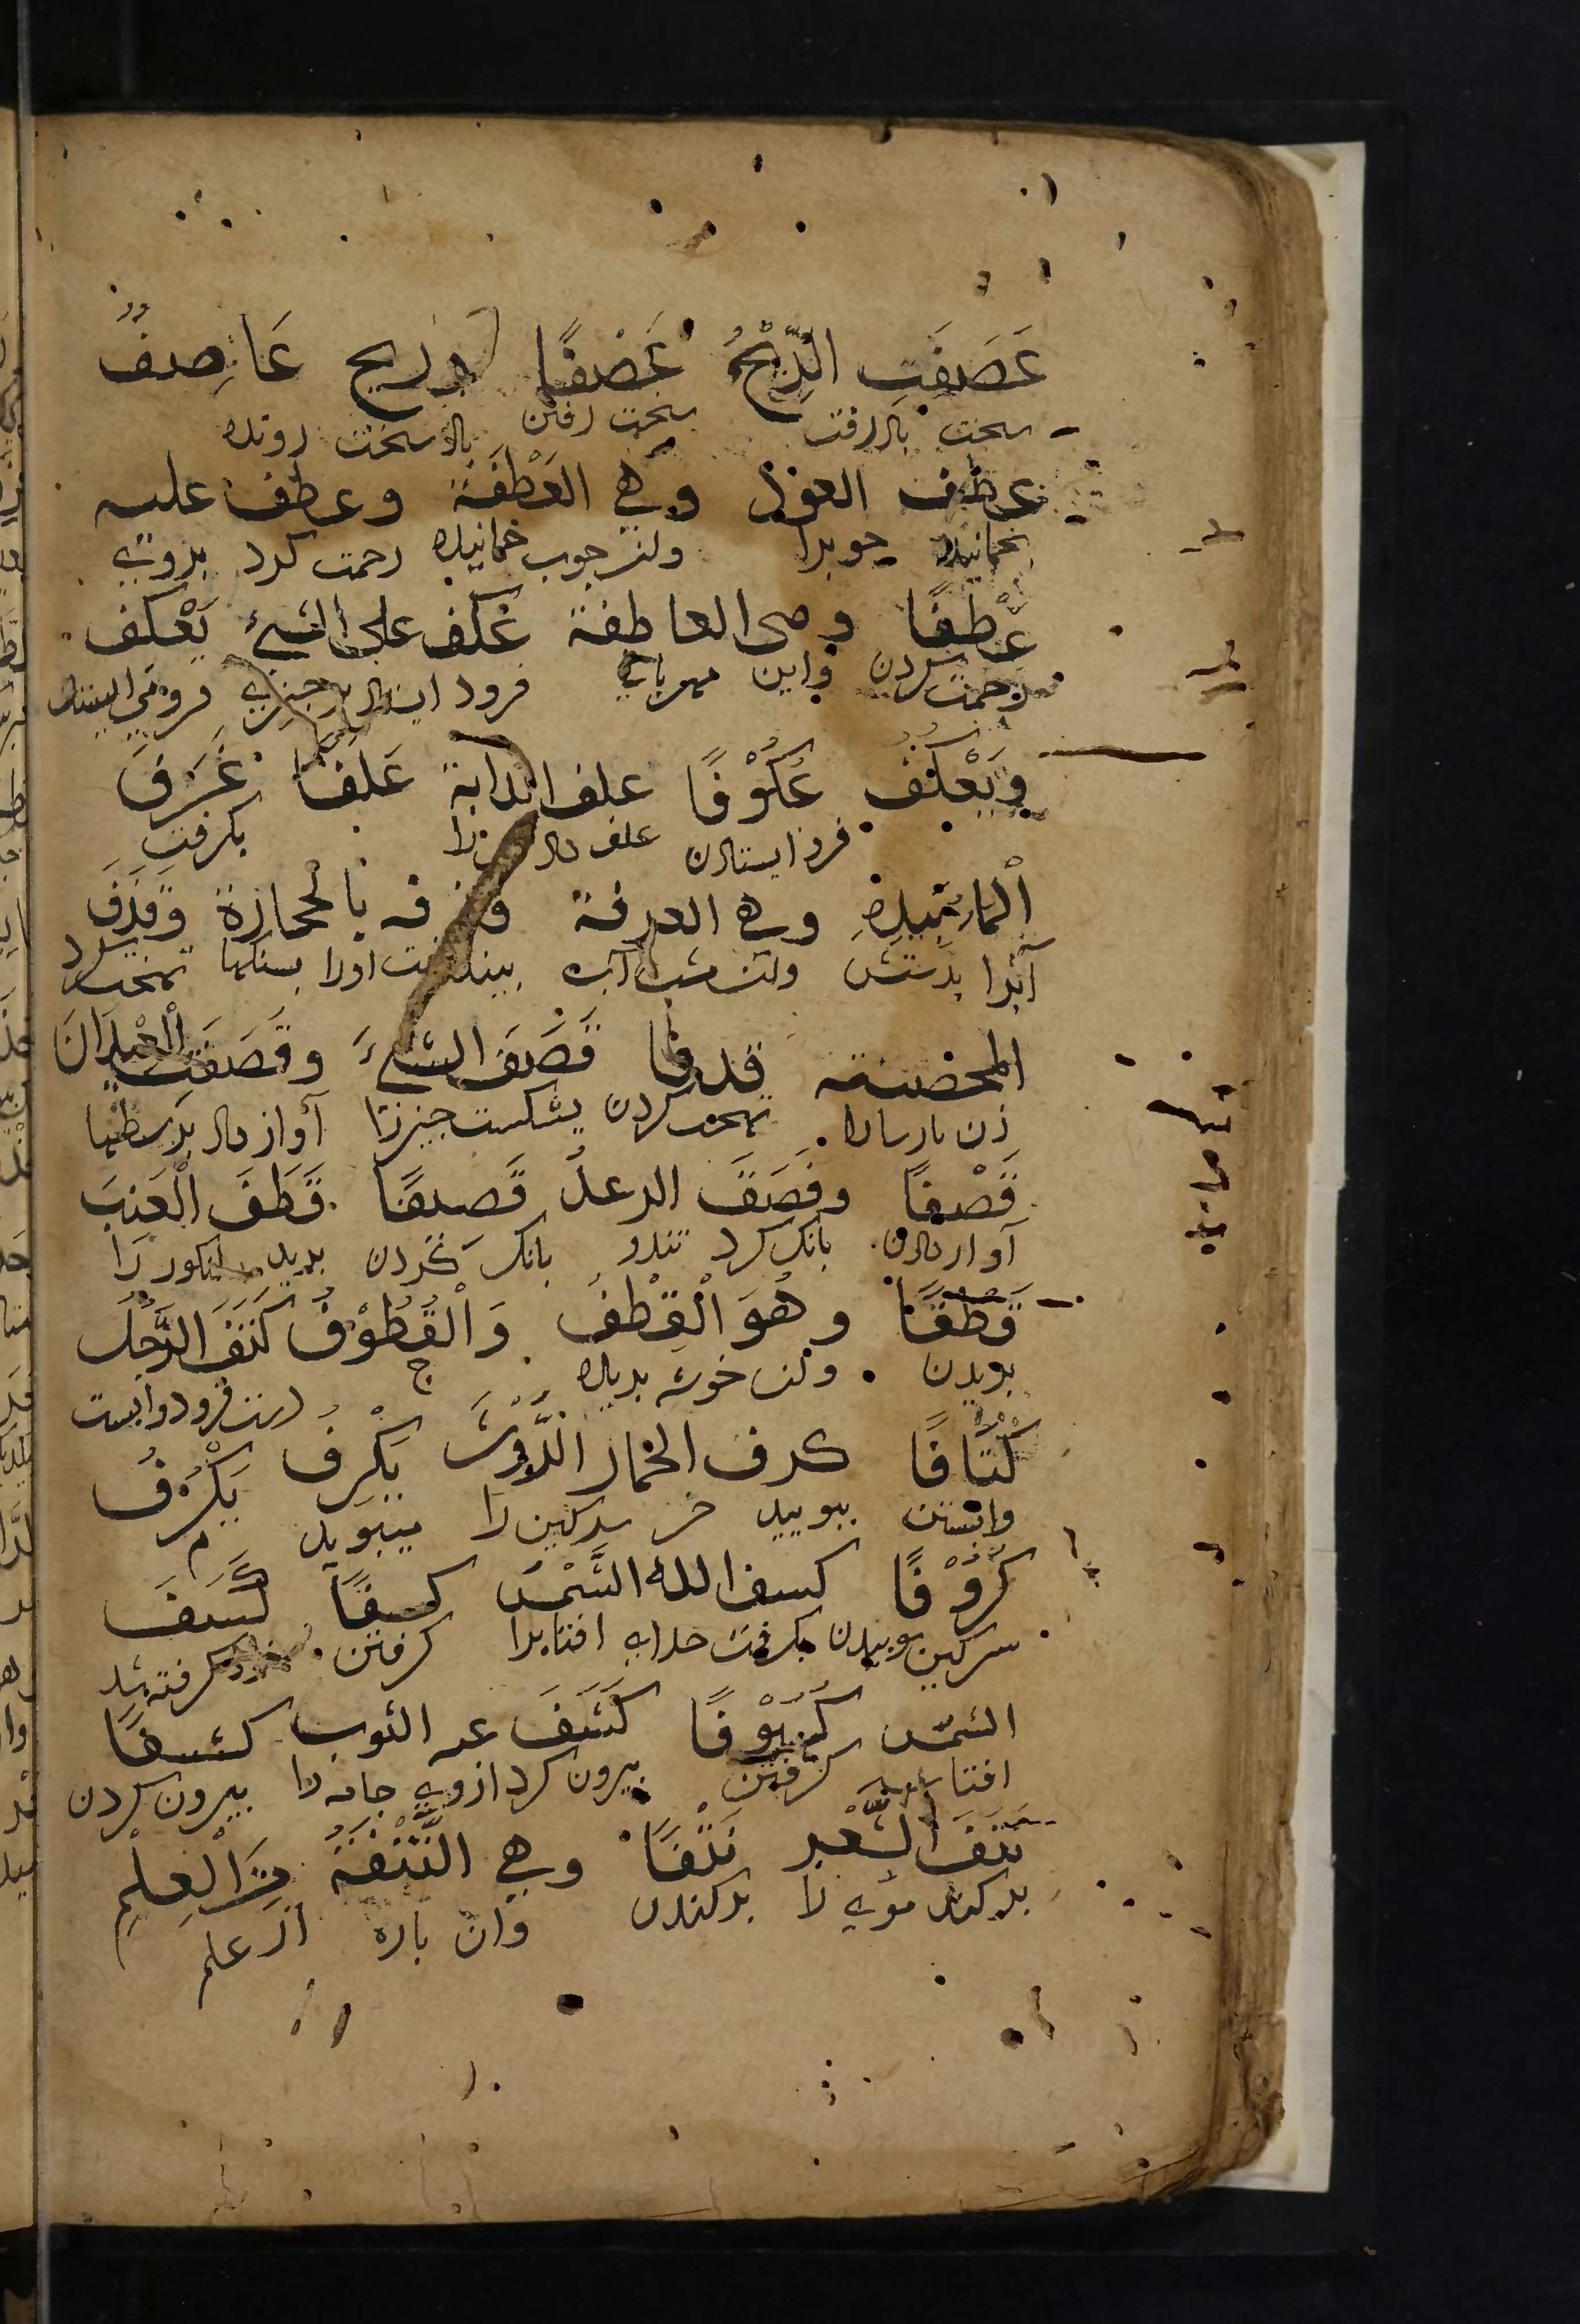 عَصَفَتِ الرِّيْحُ عَصْفًا وريح عَاصِفٌ
سخت باد رفت سخت رفتن باد سخت رونده
عطف العود وهي العَطْفَة وعطف عليه
بخمانيد چوبرا خمانيده رحمت كرد بروي
عَطْفًا وهي العاطفة عَكَفَ على الشيءِ يَعْكِف
رحمت كردن واين مهرباني فرود ايستاد بر چيزي فرو مي ايستد
وَيَعْكُفُ عُكُوْفًا علف الدابة عَلَفًا غَرَفَ
فرو ايستادن علف داد را بكرفت
ٱلْمَاءَ بِيَدِهِ وهي الغرفة وقذفه بالحجارة وَقَذَفَ
آبرا بدستش آب بينداخت اورا بسنكها تهمت كرد
المحصنة قذفا قَصَفَ الشيْءَ وقَصَفَتِ العيدَانَ
زن پارسارا تهمت كردن بشكست چيزرا آواز داد
قَصْفًا وقَصَفَ الرعدُ قَصيفًا قَطَفَ الْعِنَبَ
آواز دادن بانك كرد تندر بانك كردن بريد انكور را
قَطْفًا وهُوَ الْقِطْفُ وَالْقُطُوْفُ ج كَتَفَ الرَّجُلَ
بريدن خوشه بريده دست فرود وابست
كِتَافًا كرف الحمار الرَّوْثَ يَكْرِفُ يَكْرُفُ
وابستن ببوييد خر سركين را ميبويد
كَرُوْفًا كسف الله الشَّمْسَ كسفًا كَسَفَتِ
سركين بوييدن بكرفت خداي افتابرا كرفتن كرفته شد
الشمس كُسُوْفًا كَشَفَ عنه الثوب كشفًا
افتاب كرفتن بيرون كرد ازوي جامه را بيرون كردن
نَتَفَ الشَّعْرَ نَتْفًا وهي النُّتْفَةُ مِنَ الْعِلْمِ
بركند موي را بركندن وان پاره از علم